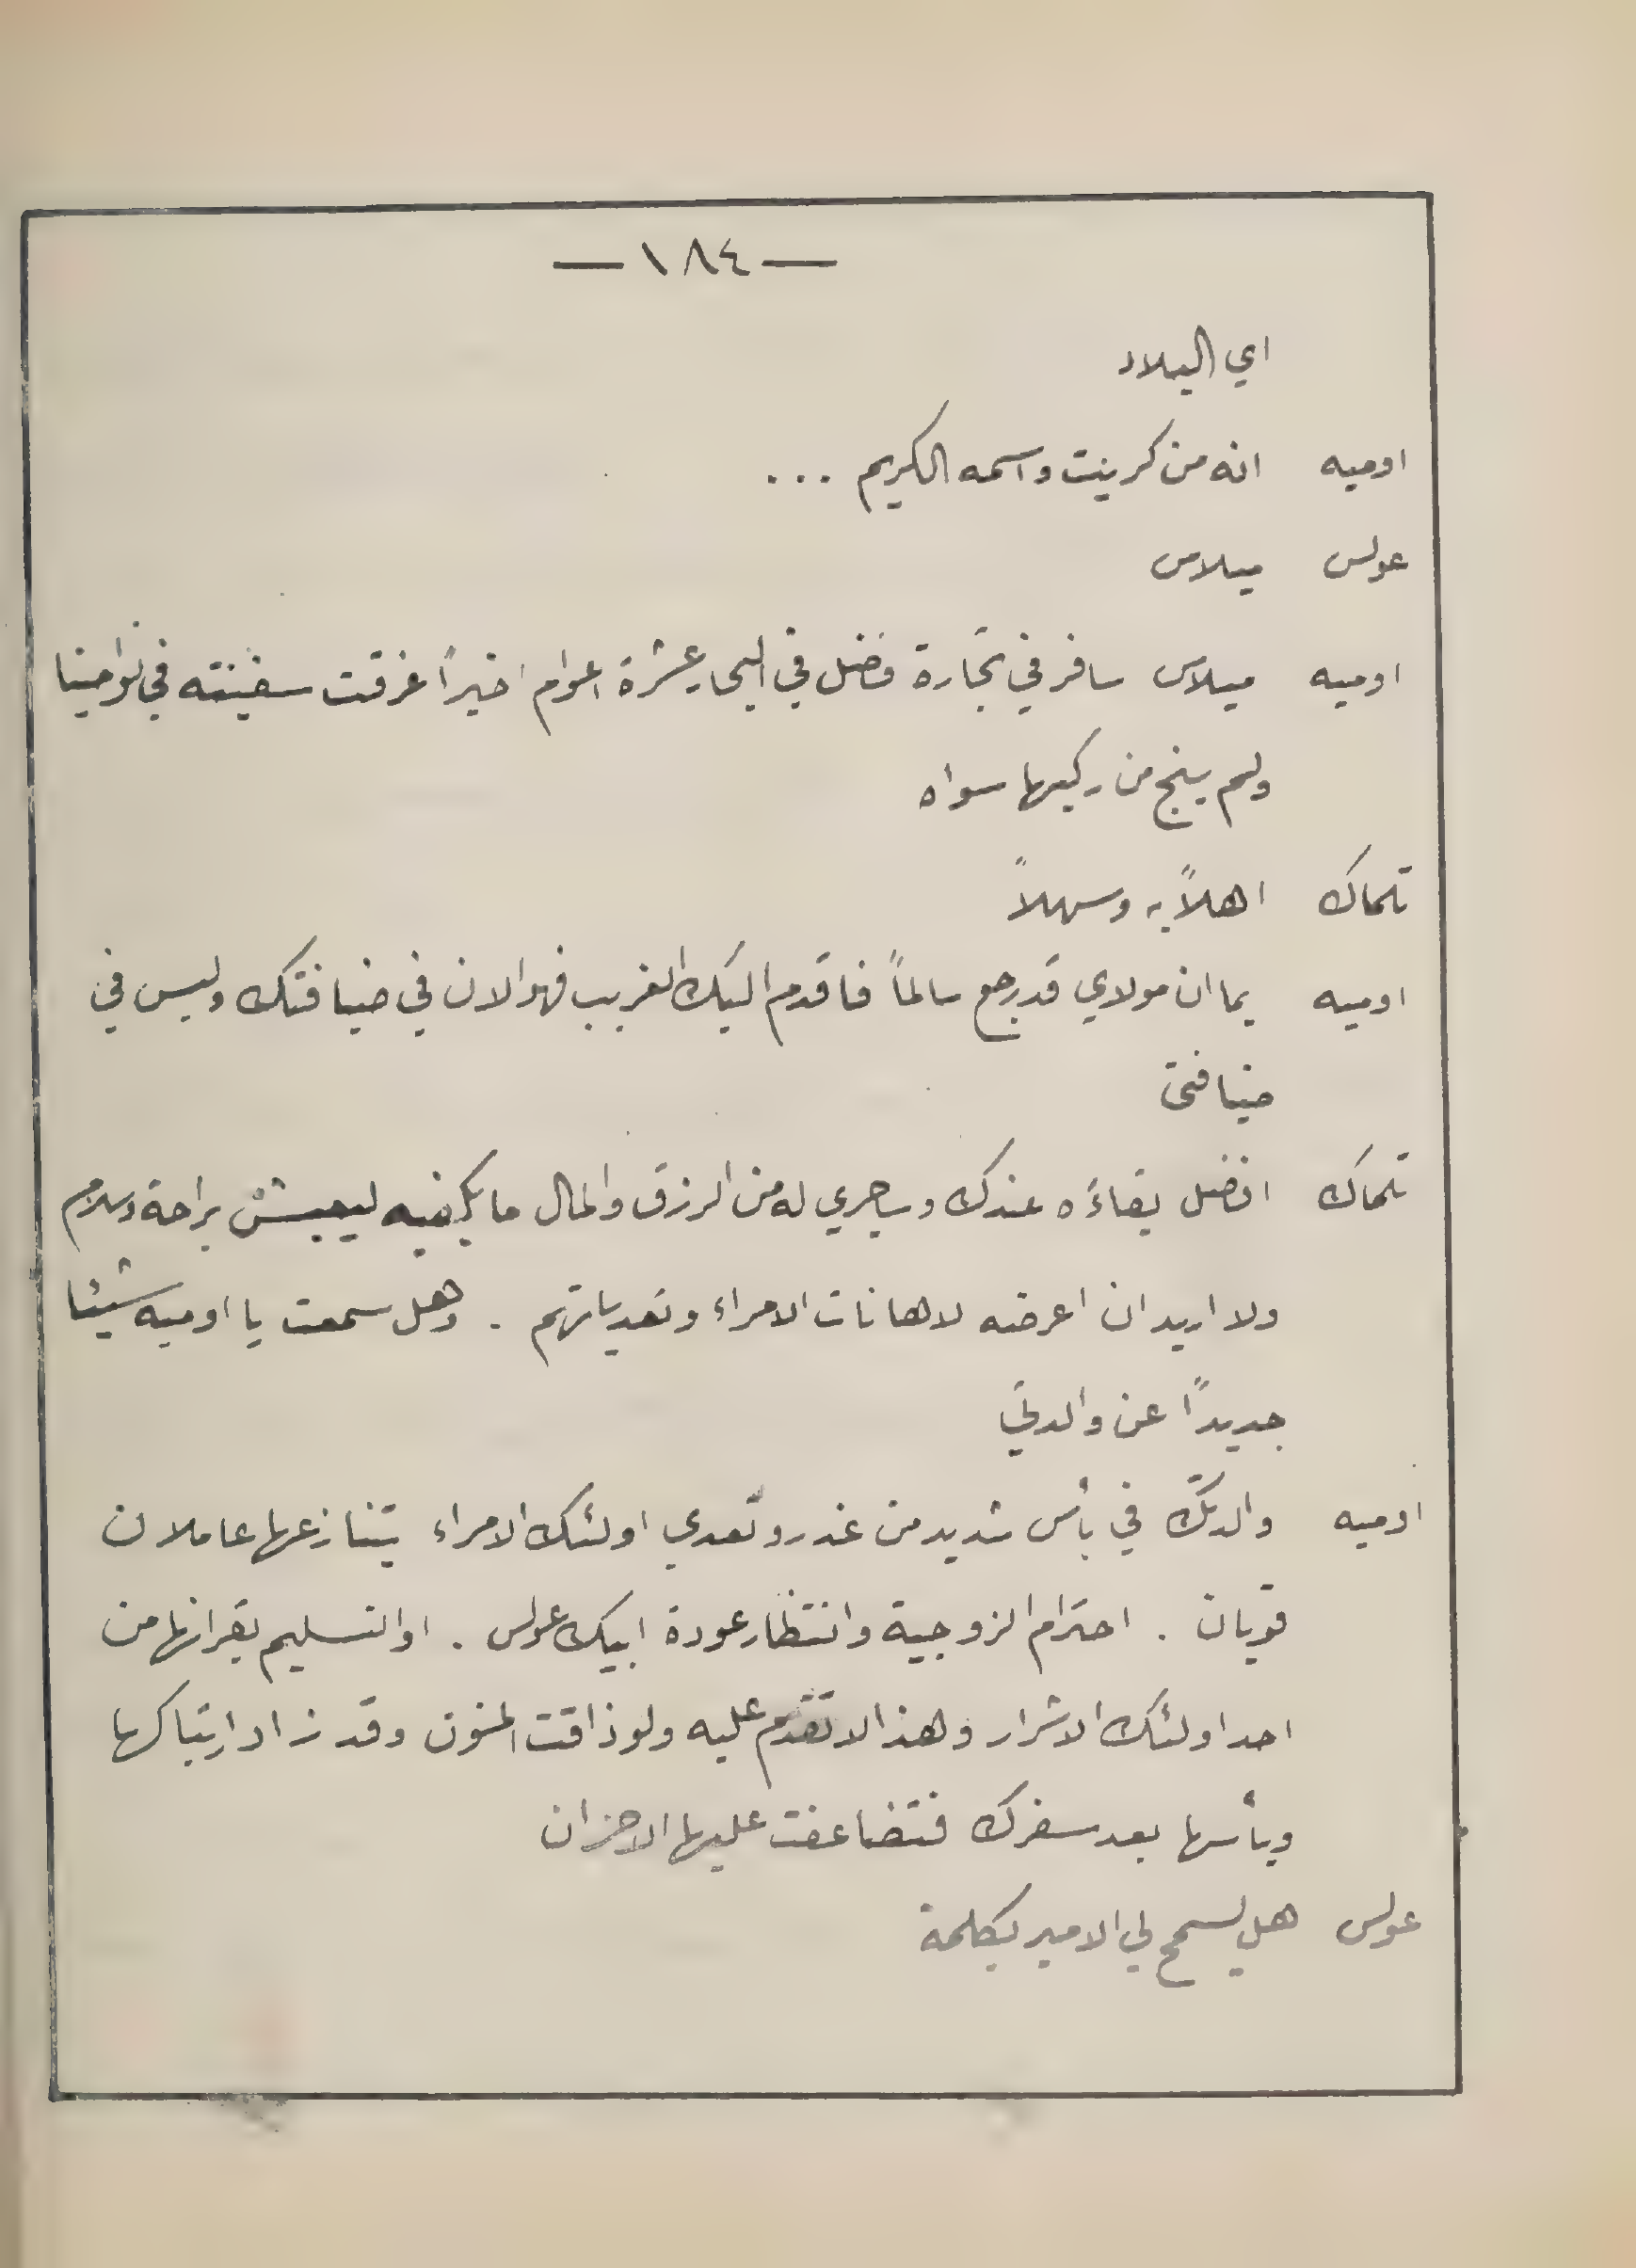 — ١٨٤ —
اي البلاد
اوميه انه من كرينت واسمه الكريم ...
عولس ميلاس
اوميه ميلاس سافر في تجارة فضل في البحار عشرة اعوام اخيراً غرقت سفينته في نواحينا
ولم ينج من ركبها سواه
تلماك اهلاً به وسهلاً
اوميه بما ان مولاي قد رجع سالماً فاقدم اليك الغريب فهو الان في ضيافتك وليس في
ضيافتي
تلماك افضل بقاءه عندك وساجري له من الرزق والمال ما يكفيه ليعيش براحة وسلام
ولا اريد ان اعرضه لاهانات الامراء وتعدياتهم . وهل سمعت يا اوميه شيئا
جديداً عن والدتي
اوميه والدتك في بأس شديد من غدر وتعدي اولئك الامراء يتنازعها عاملان
قويان . احترام الزوجية وانتظار عودة ابيك عولس . او التسليم بقرانها من
احد اولئك الاشرار وهذا لا تقدم عليه ولو ذاقت المنون وقد زاد ارتباكها
ويأسها بعد سفرك فتضاعفت عليها الاحزان
عولس هل يسمح لي الامير بكلمة